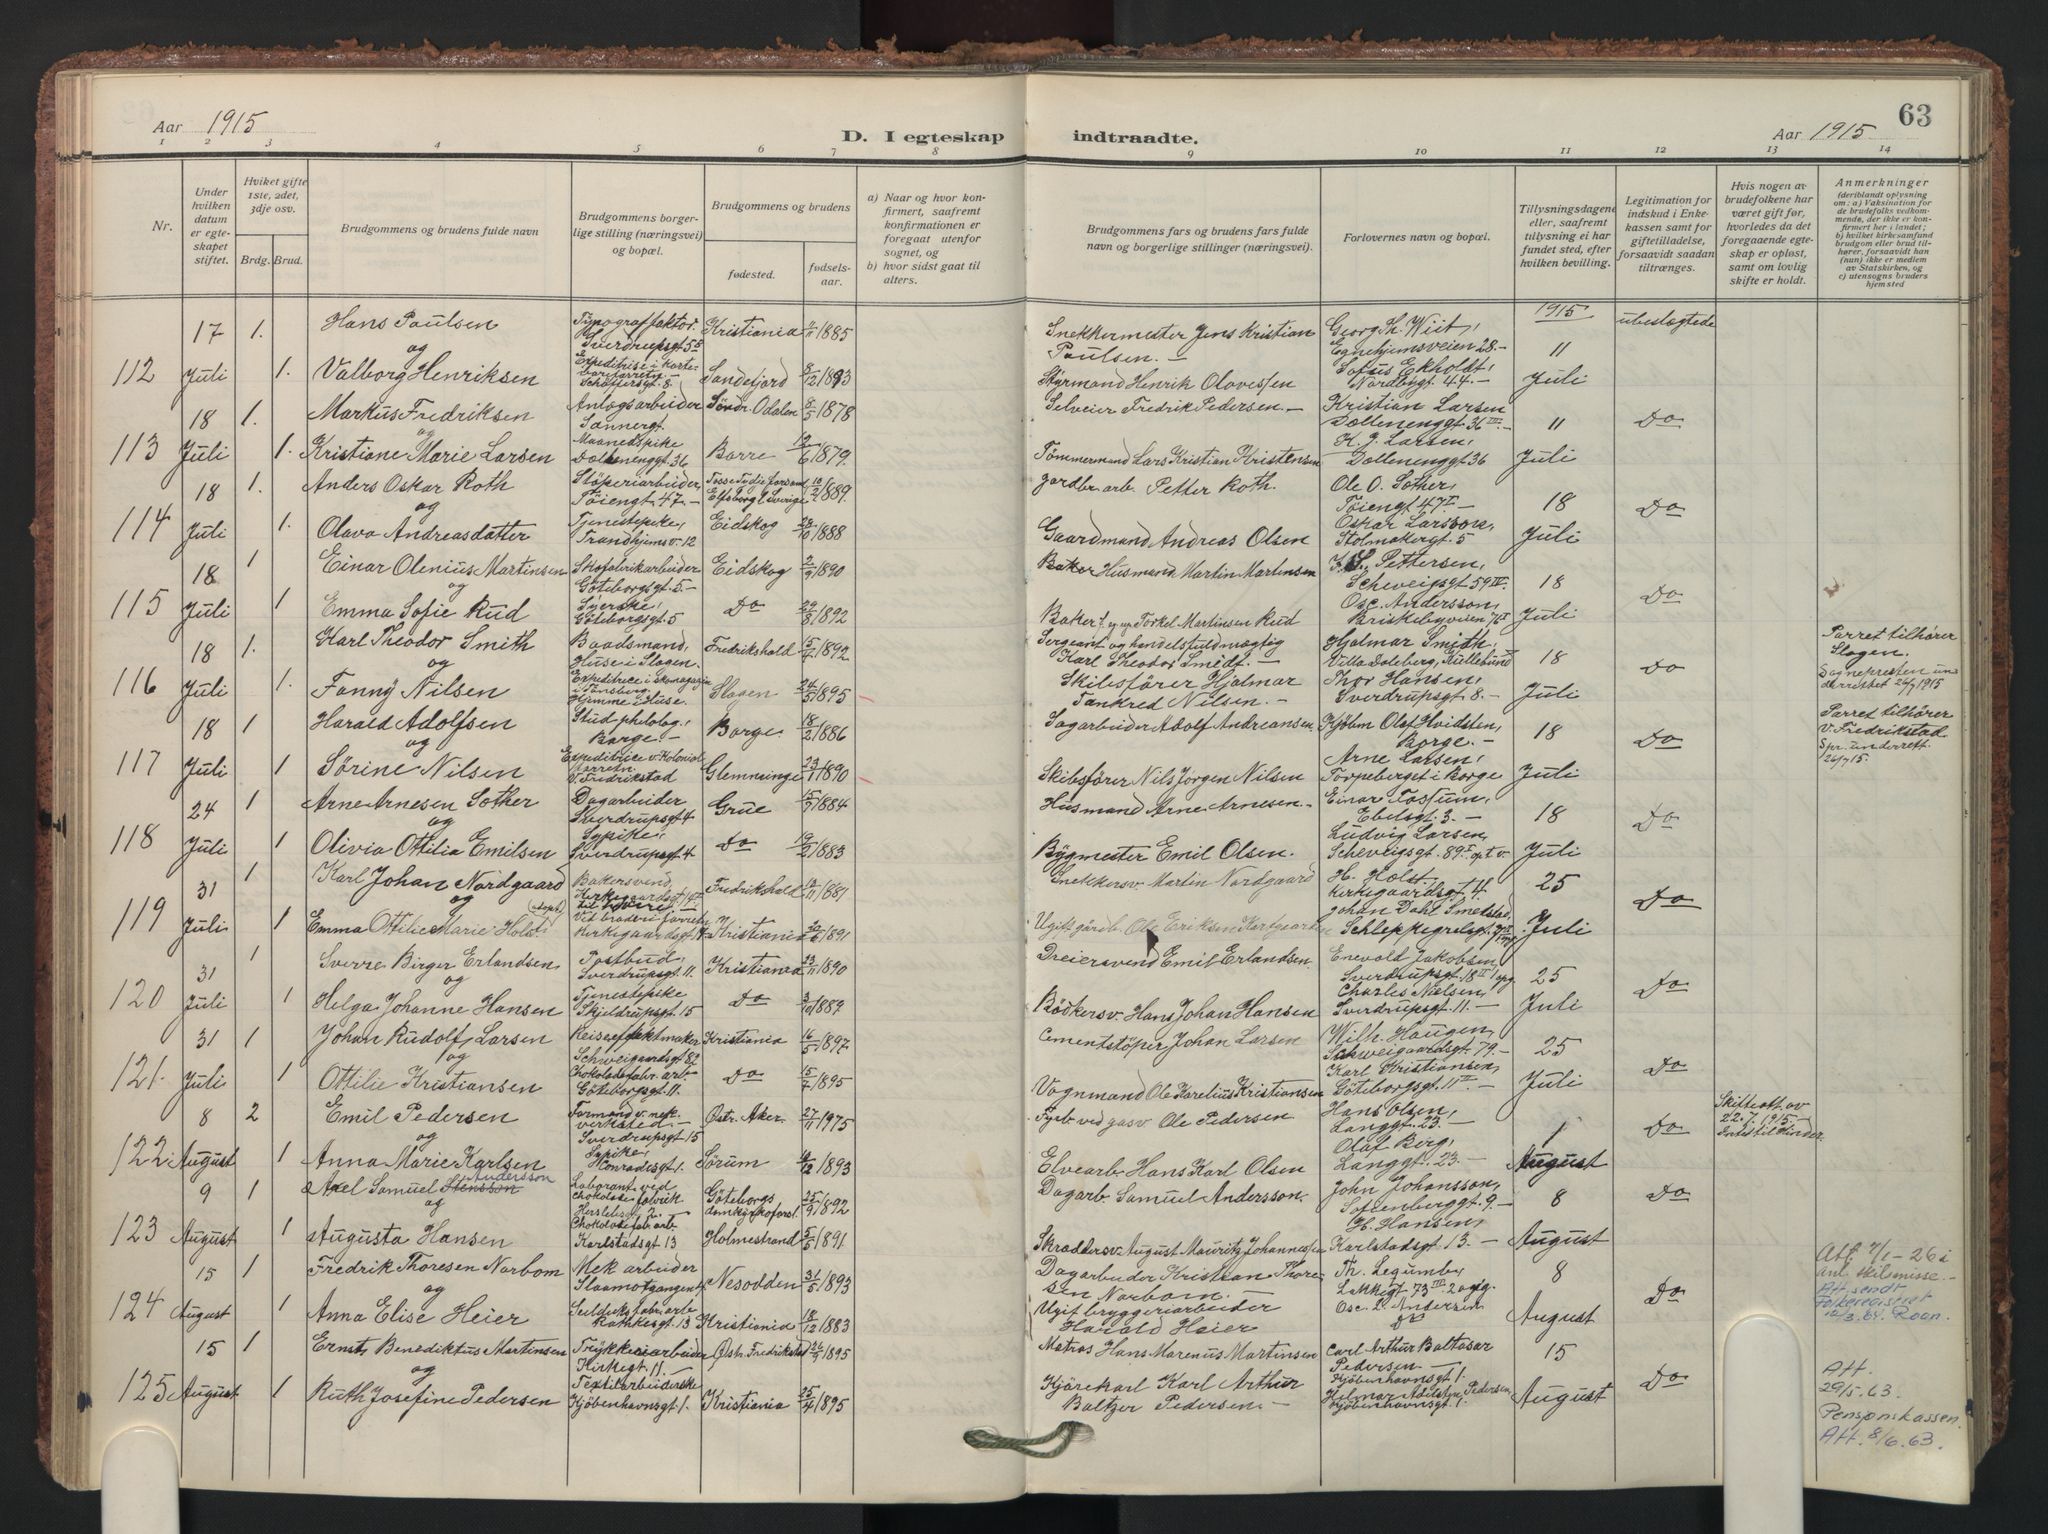 63
Aar 1915
D. I egteskap indtraadte.
Aar 1915
1 2 3 4 5 6 7 8 9 10 11 12 13 14
Nr.
Under hvilken datum er egteskapet stiftet.
Hvilket gifte 1ste, 2det, 3dje osv.
Brdg. Brud.
Brudgommens og brudens fulde navn
Brudgommens borgerlige stilling (næringsvei) og bopæl.
Brudgommens og brudens
fødested.
fødselsaar.
a) Naar og hvor konfirmert, saafremt konfirmationen er foregaat utenfor sognet, og
b) hvor sidst gaat til alters.
Brudgommens fars og brudens fars fulde navn og borgerlige stillinger (næringsvei).
Forlovernes navn og bopæl.
Tillysningsdagene eller, saafremt tillysning ei har fundet sted, efter hvilken bevilling.
Legitimation for indskud i Enkekassen samt for giftetilladelse, forsaavidt saadan tiltrænges.
Hvis nogen av brudefolkene har været gift før, hvorledes da det foregaaende egteskap er opløst, samt om lovlig skifte er holdt.
Anmerkninger
(deriblandt oplysning om: a) Vaksination for de brudefolks vedkommende, der ikke er konfirmert her i landet; b) hvilket kirkesamfund brudgom eller brud tilhører, forsaavidt han (hun) ikke er medlem av Statskirken, og c) utensogns bruders hjemsted
1915
112 17 Juli 1. Hans Paulsen Typograffaktor. Sverdrupsgt 5 Kristiania 1885 Snekkermester Jens Kristian Paulsen. Georg Th. Wiit, Egnehjemsveien 28. 11 Juli ubeslegtede
og
1. Valborg Henriksen Sandefjord 8/12 1893 Styrmand Henrik Olavessen Sofus Ekholdt, Nordbygt. 44.
113 18 Juli 1. Markus Fredriksen Anlogsarbeider Sannergt. Söndr. Odalen 8/5 1878 Selveier Fredrik Pedersen. Kristian Larsen Dælenenggt 36 III. 11 Juli Do
og
1. Kristiane Marie Larsen Maanedspike Dælenenggt. 36 Borre 1879. Tömmermand Lars Kristian Kristensen K. J. Larsen, Dælenenggt 36
114 18 Juli 1. Anders Oskar Roth Støperiarbeider, Töiengt. 47. Elfsborg l. Sverige 10/2 1889. gardbr. arb. Petter Roth. Ole O. Sother, Töiengt 47 I 18 Juli Do
og
1. Olava Andreasdatter Tjenestepike, Trondhjemsv. 12 Eidskog 28/10 1888 Gaardmand Andreas Olsen Oskar Larsson, Stolmakergt. 5
115 18 Juli 1 Einar Olenius Martinsen Skofabrikarbeider Göteborgsgt. 5. Eidskog 2/9 1890 Husmand Martin Martinsen Pettersen, Schweigsgt 59 IV. 18 Juli Do
og
1 Emma Sofie Rud Syerske, Göteborgsgt. 5 Do 29/8 1892 Torkel Martinsen Rud Osc. Andersson, Briskebyveien 76 I
116 18 Juli 1. Karl Theodor Smith Baadsmand, Huse i Slagen. Fredrikshald 5/4 1892 Sergeant og handelsfuldmægtig Karl Theodor Smidt. Hjalmar Smith, 18 Juli Do Parret tilhører Slagen. Sognepresten underrettet 26/7 1915
og
1. Fanny Nilsen Hjemme i Huse. Slagen 24/5 1895 Skibsfører Hjalmar Tankred Nilsen. Thor Hansen, Sverdrupsgt 8.
117 18 Juli 1 Harald Adolfsen Stud philolog, Borge. Borge 18/2 1886 Sagarbeider Adolf Andreansen Kjøbm Olaf Hvidsten, Borge. 18 Juli Do Parret tilhører V. Fredrikstad Spr. underrett. 26/7 15.
og
1 Sörine Nilsen V. Fredrikstad Glemminge 23/1 1890 Skibsfører Nils Jörgen Nilsen Arne Larsen, Torpeberget i Borge
118 24 Juli 1 Arne Arnesen Sother Dagarbeider Sverdrupsgt 4 Grue 15/9 1884 Husmand Arne Arnesen. Einar Fossum, Ebelsgt. 3. 18 Juli Do
og
1 Olivia Ottilia Emilsen Sypike, Sverdrupsgt. 4 Do 19/2 1883 Bygmester Emil Olsen. Ludvig Larsen, Schweigsgt. 89
119 31 Juli 1 Karl Johan Nordgaard Bakersvend, Kirkegaardsgt Fredrikshald 1881 Snekkersv. Martin Nordgaard H. Holst, Kirkegaardsgt. 4. 25 Juli Do
og
1 Emma Ottilie Marie Holst (adopt) Kirkegaardsgt. Kristiania 1891 Ole Eriksen Johan Dahl Smedstad, Schleppegrelsgt.
120 31 Juli 1 Sverre Birger Erlandsen Postbud, Sverdrupsgt. 11. Kristiania 23/11 1890 Dreiersvend Emil Erlandsen. Enevold Jakobsen, Sverdrupsgt. 18 II 25 Juli Do
og
1 Helga Johanne Hansen Tjenestepike Skjeldrupsgt. 15 Do 3/10 1887 Bödkersv. Hans Johan Hansen Charles Nielsen, Sverdrupsgt. 11.
121. 31 Juli 1 Johan Rudolf Larsen Reiseeffektmaker Schweigaardsgt 82 Kristiania 16/5 1897 Cementstöper Johan Larsen Wilh. Haugen, Schweigaardsgt. 79. 25 Juli Do
og
1 Ottilie Kristiansen Chokoladefabr. arb. Göteborgsgt. 11. Do 15/7 1895 Vognmand Ole Karelius Kristiansen Karl Kristiansen, Göteborgsgt. 11 II
122 8 August 2 Emil Pedersen Formand v. mek. verksted. Sverdrupsgt 15 Østr. Aker 27/11 1975 Fyrb ved gasv Ole Pedersen Hans Olsen, Langgt. 23. 1 August Do Skifteatt. av 22.7.1915. Intet til Hinder.
og
1 Anna Marie Karlsen Sypike, Conradisgt 1. Sørum 1893 Elvearb. Hans Karl Olsen Olaf Berg, Langgt. 23.
123 9 August 1 Axel Samuel Stensson Andersson Laborant ved chokolade fabrik Herslebsgt 2. Göteborgs domkyrkoförsl. 25/9 1892 Dagarb. Samuel Andersson. John Johansson, Sofienberggt. 9. 8 August Do
og
1 Augusta Hansen Chokoladefab. arb Karlstadsgt. 13 Holmestrand 5/5 1891 Skræddersv. August Mauritz Johannessen H. Hansen, Karlstadsgt. 13.
124 15 August 1 Fredrik Thoresen Narbom Mek arbeider Nesodden 31/5 1893 Dagarbeider Kristian Thoresen Narbom. Th. Legumb, 8 August Do Att 7/1-26 i anl. skilsmisse. Att. sendt Folkeregistret
og
1 Anna Elise Heier Rathkesgt. 13 Kristiania 18/12 1883 Ugift bryggeriarbeider Harald Heier Osc. L. Andersen Do
125 15 August 1 Ernst Benediktus Martinsen Trykkeriarbeider Kirkegt. 11. Østr. Fredrikstad 26/9 1895 Matros Hans Marenus Martinsen Carl Arthur Baltasar Pedersen Kjöbenhavnsgt 1. 15 August Do Att. 29/5.63. Pensjonskassen. Att. 8/6.63.
og
1 Ruth Josefine Pedersen Textilarbeiderske Kjöbenhavnsgt 1. Kristiania 25/4 1895 Kjörekarl Karl Arthur Baltzer Pedersen. Pedersen, Kjöbenhavnsgt. 1.